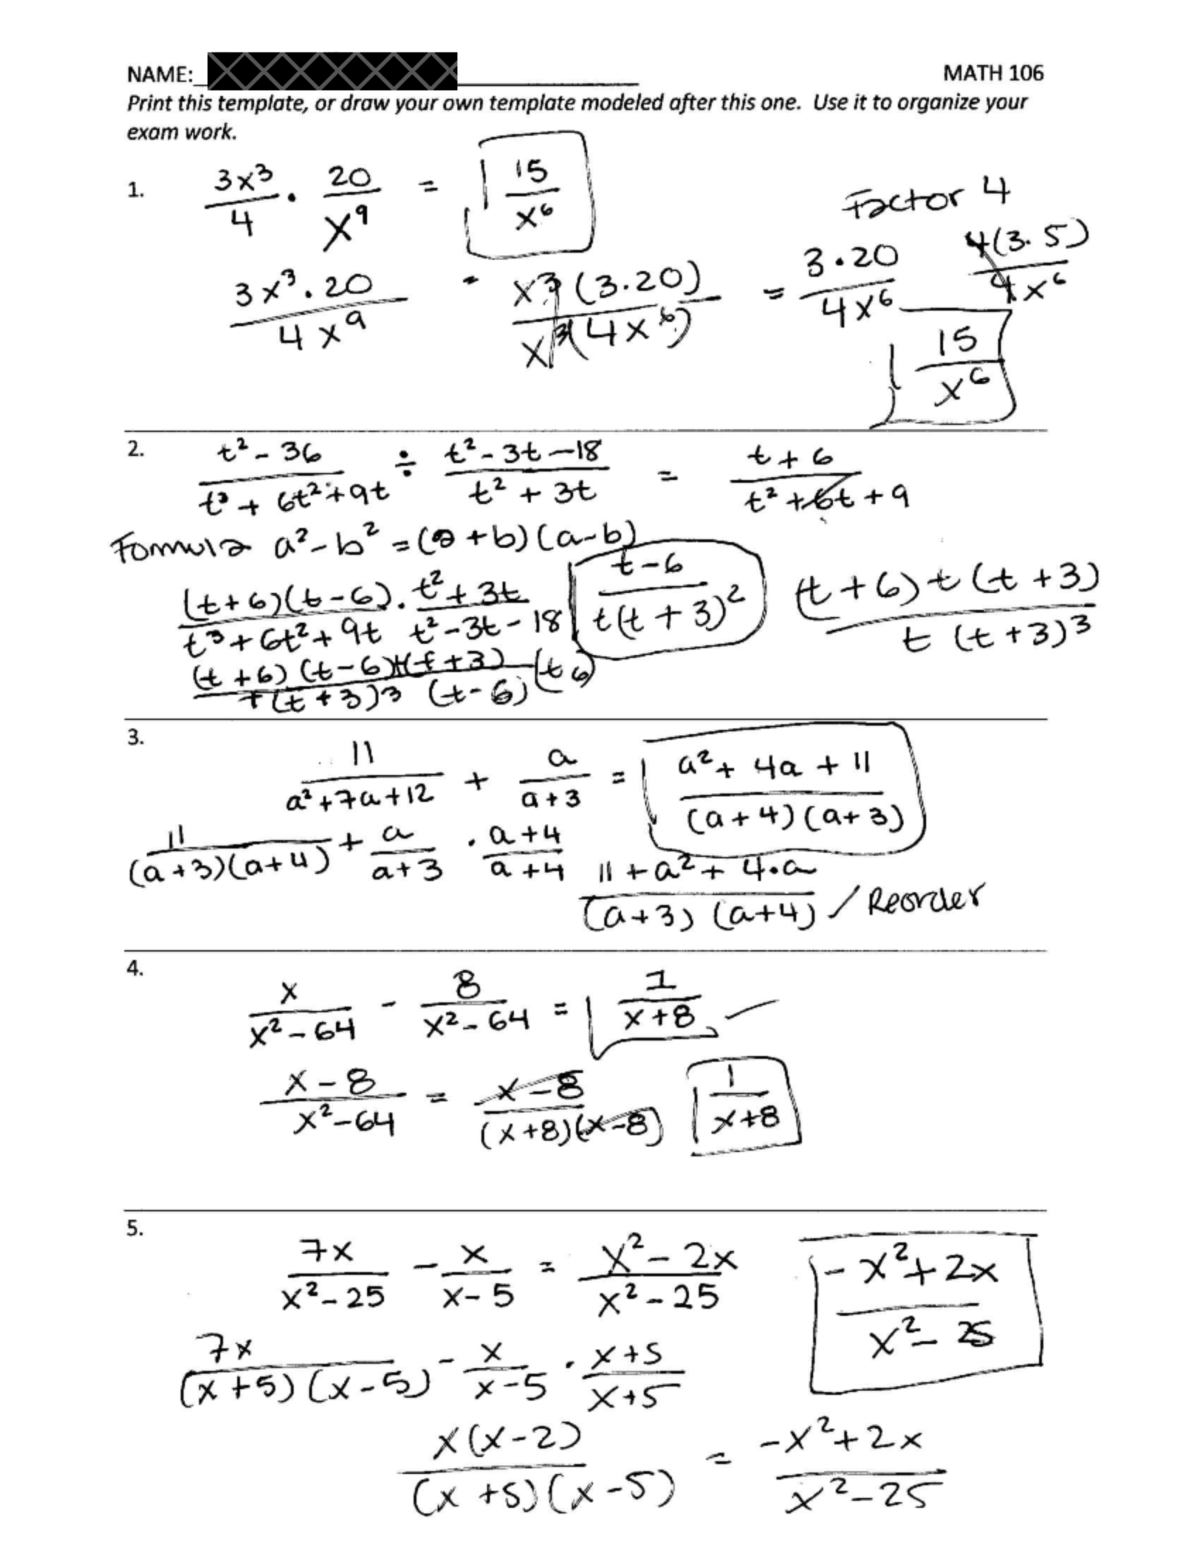 NAME: MATH 106
Print this template, or draw your own template modeled after this one. Use it to organize your
exam work.
1. 3x³/4 · 20/x⁹ = 15/x⁶
Factor 4
3x³·20/4x⁹ = x³(3·20)/x³(4x⁶) = 3·20/4x⁶ 4(3·5)/4x⁶
15/x⁶
2. t²-36/t³+6t²+9t ÷ t²-3t-18/t²+3t = t+6/t²+6t+9
Formula a²-b² = (a+b)(a-b)
(t+6)(t-6)/t³+6t²+9t · t²+3t/t²-3t-18 t-6/t(t+3)² (t+6)t(t+3)/t(t+3)³
(t+6)(t-6)t(t+3)/t(t+3)³(t-6) (t 6)
3. 11/a²+7a+12 + a/a+3 = a²+4a+11/(a+4)(a+3)
11/(a+3)(a+4) + a/a+3 · a+4/a+4 11+a²+4·a/(a+3)(a+4) / Reorder
4. x/x²-64 - 8/x²-64 = 1/x+8
x-8/x²-64 = x-8/(x+8)(x-8) 1/x+8
5. 7x/x²-25 - x/x-5 = x²-2x/x²-25 -x²+2x/x²-25
7x/(x+5)(x-5) - x/x-5 · x+5/x+5
x(x-2)/(x+5)(x-5) = -x²+2x/x²-25